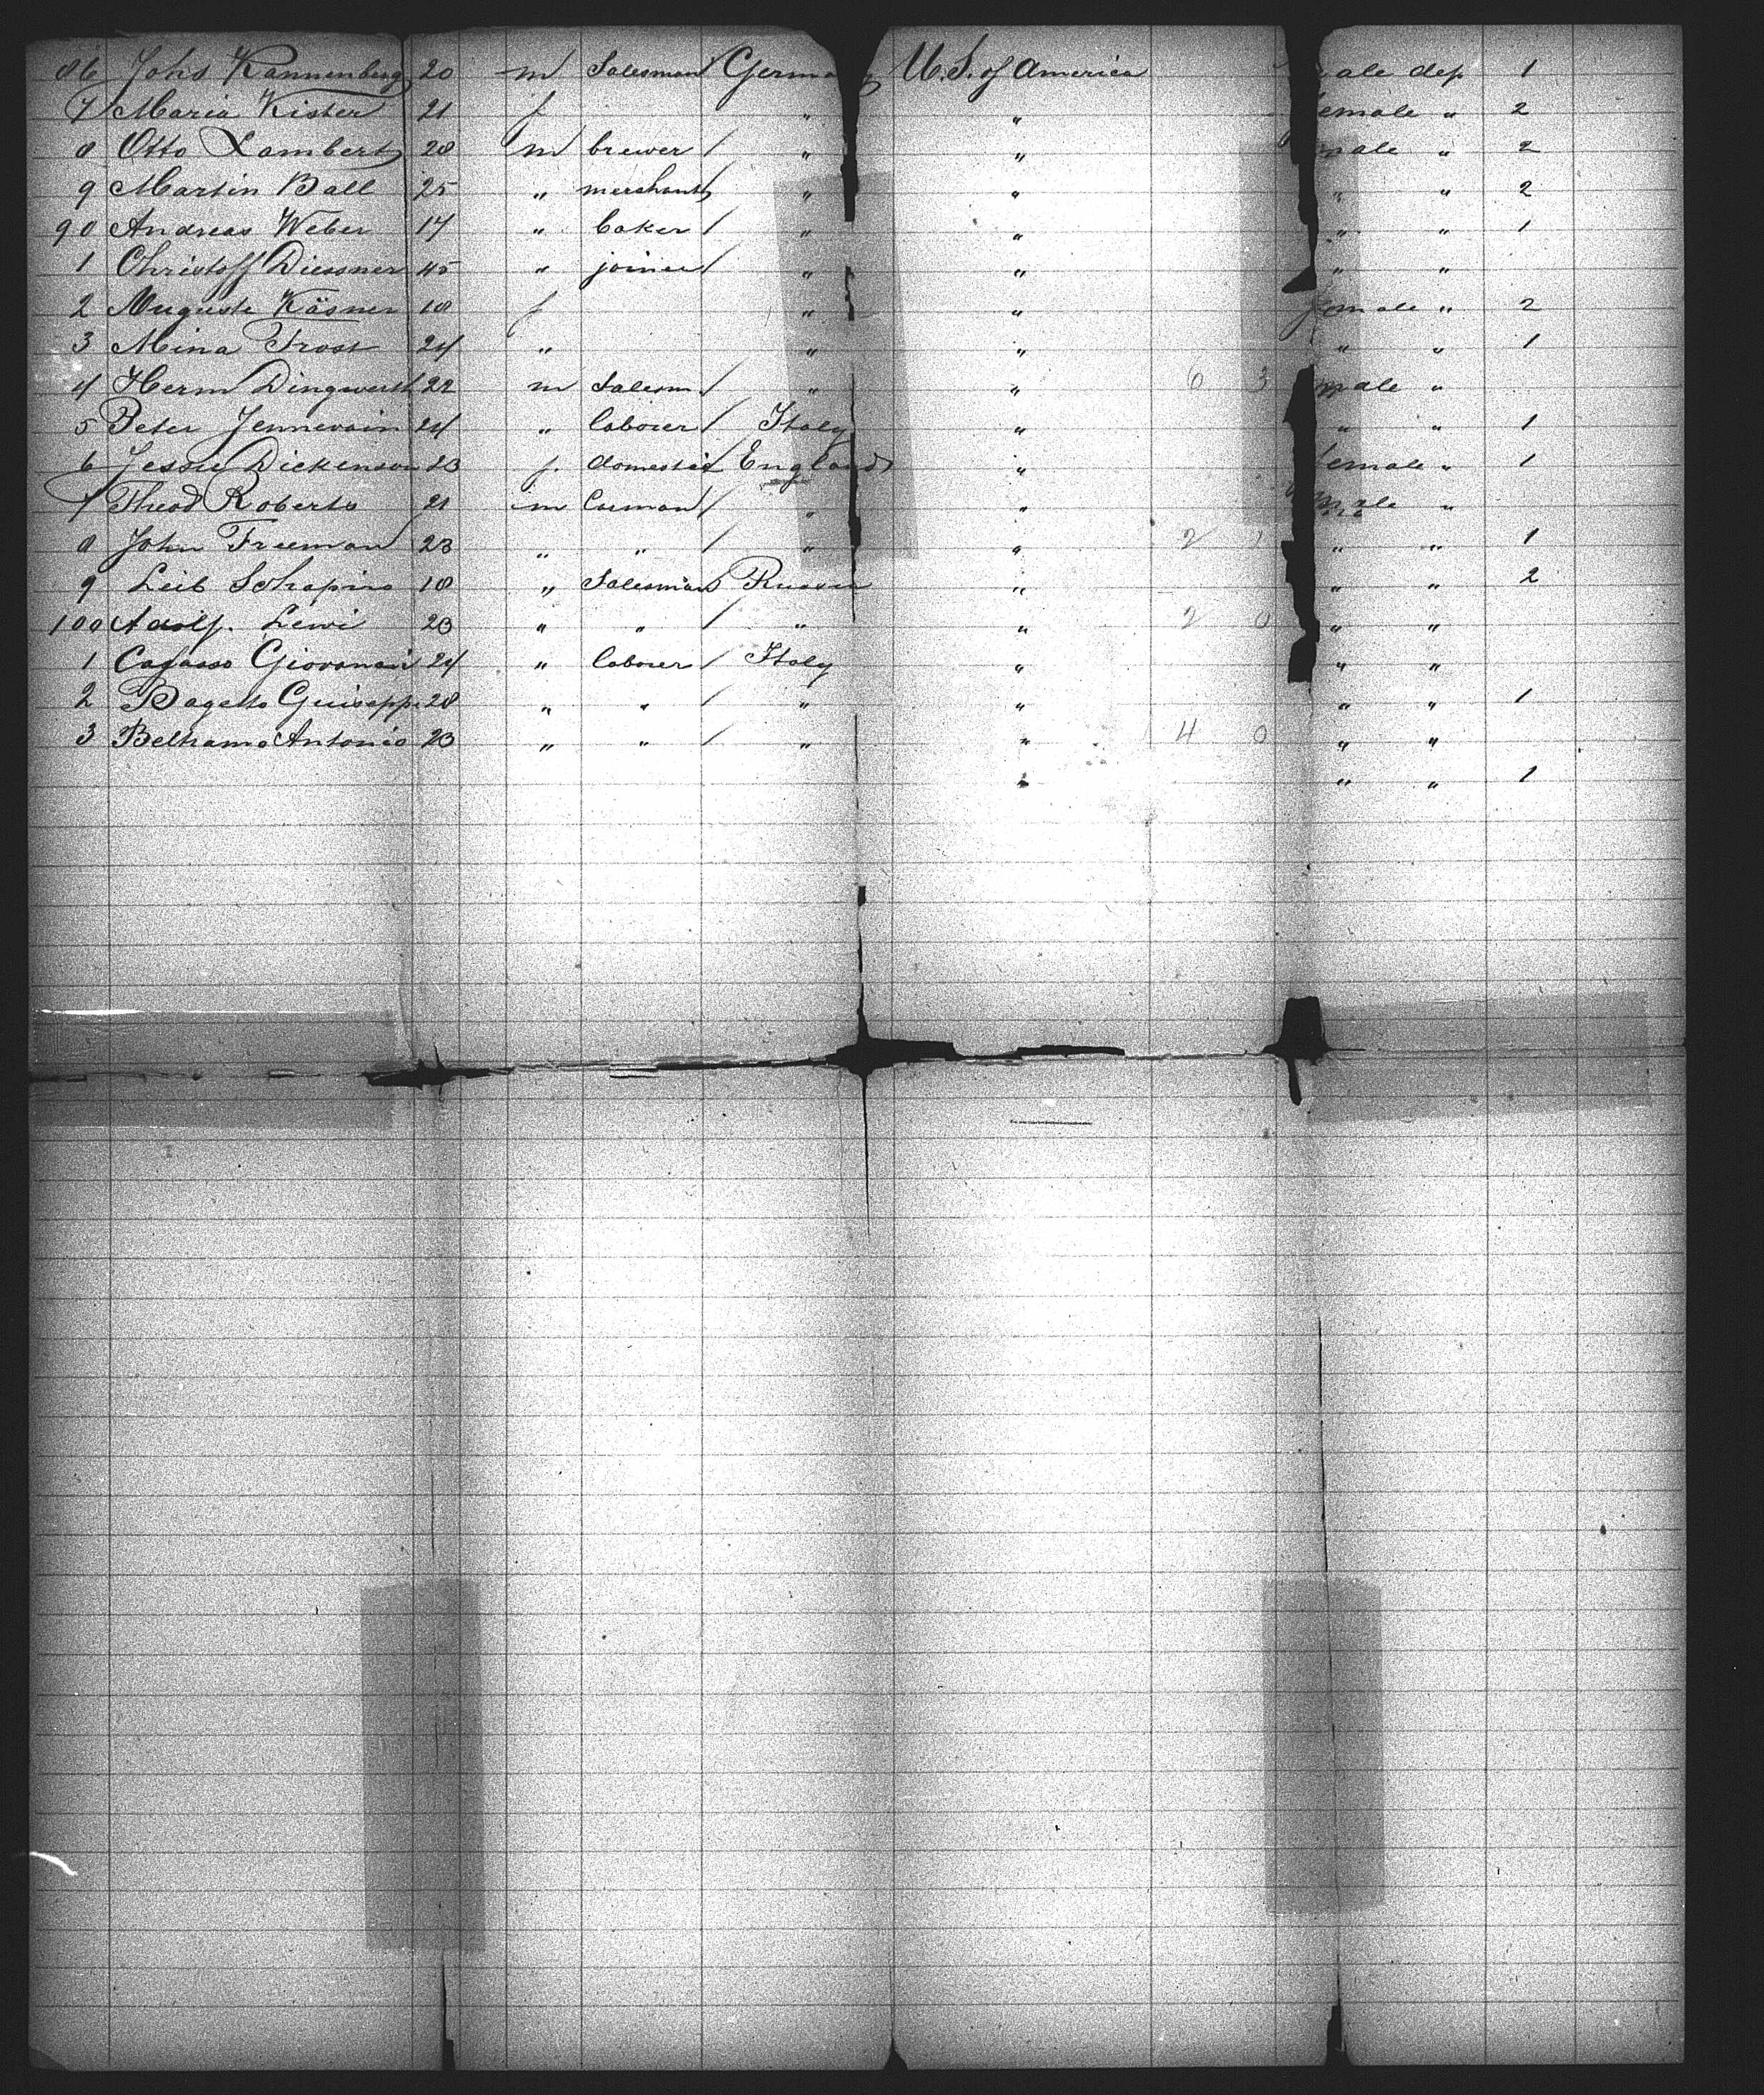 86 Johs Kannenberg 20 m Salesman Germany U. S. of America male dep. 1
7 Maria Kister 21 f " " female " 2
8 Otto Lambert 28 m brewer / " " male " 2
9 Martin Ball 25 " merchant / " " " " 2
90 Andreas Weber 17 " baker / " " " " 1
1 Christoff Diessner 45 " joiner / " " " "
2 Auguste Käsner 18 f " " female " 2
3 Mina Frost 24 " " " " " 1
4 Herm Dingwerth 22 m Salesm / " " 6 3 male "
5 Peter Jennevain 24 " laborer / Italy " " " 1
6 Jessie Dickenson 23 f. domestic England " female " 1
7 Theod Roberts 21 m / " " male "
8 John Freeman 23 " " / " " 2 " " 1
9 Leib Schapiro 18 " Salesman Russia " " " 2
100 Adolf. Lewi 23 " " / " " 2 0 " "
1 Giovanni 24 " laborer / Italy " " "
2 Bagetto Guiseppe 28 " " / " " " " 1
3 Beltramo Antonio 23 " " / " " 4 0 " "
" " " 1